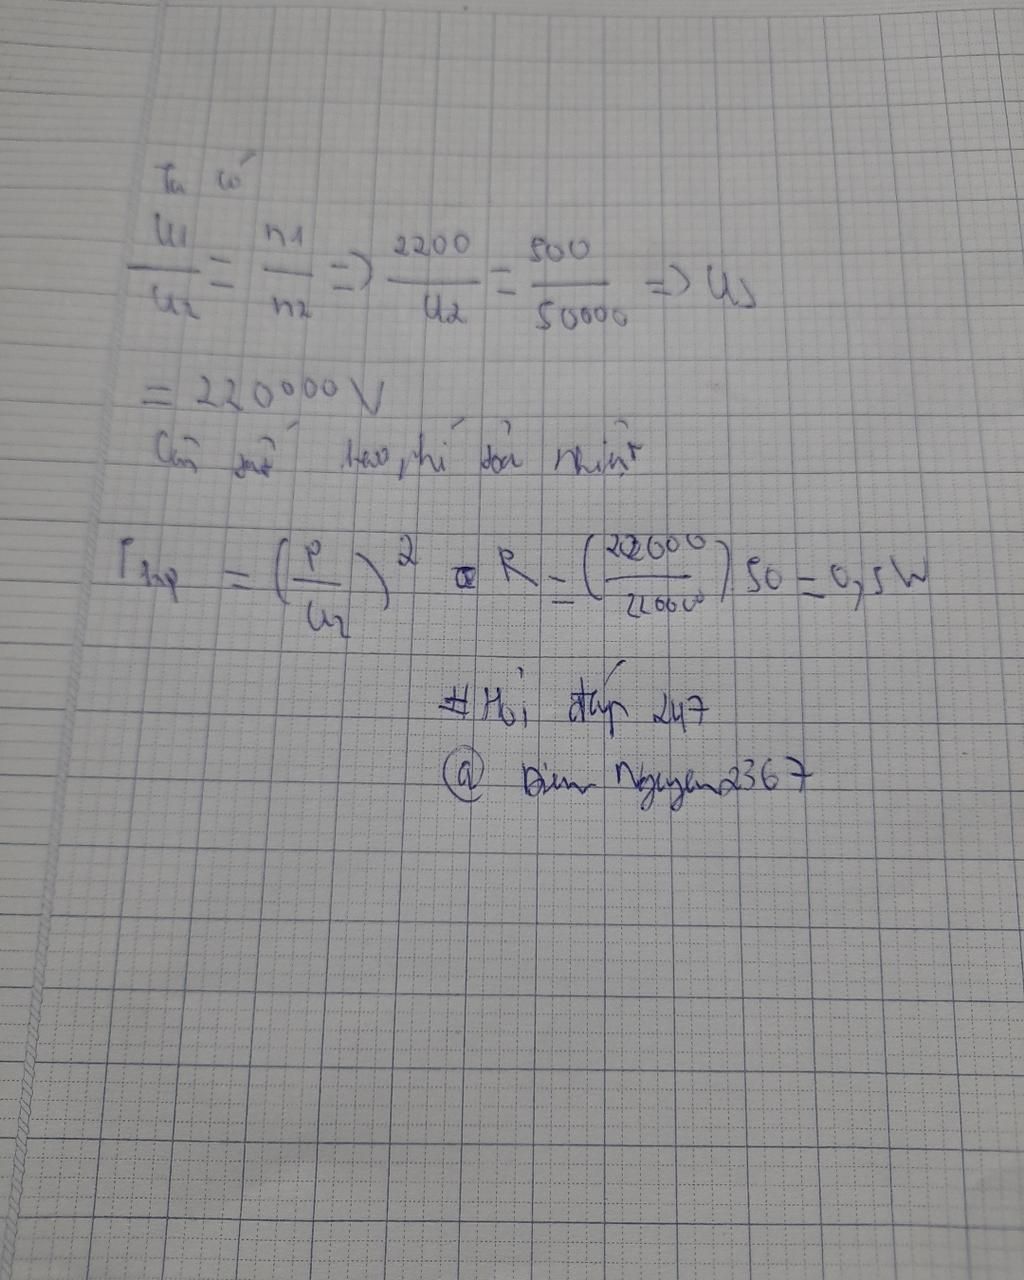 Ta có
U1/U2 = n1/n2 => 2200/U2 = 500/50000 => U2
= 220000V
Công suất hao phí toả nhiệt
Php = (P/U2)² . R = (22000/220000) 50 = 0,5W
#Hỏi đáp 247
@ Nguyen2367